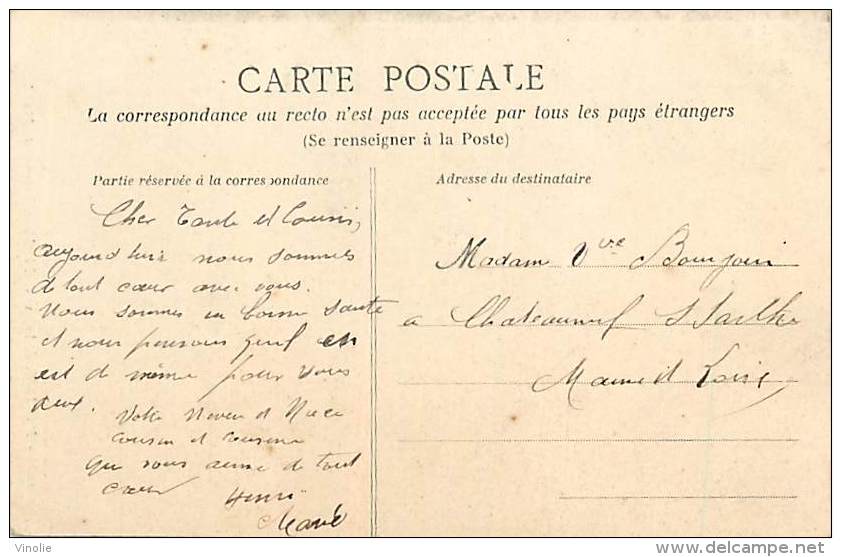 CARTE POSTALE
La correspondance au recto n'est pas acceptée par tous les pays étrangers
(Se renseigner à la Poste)
Partie réservée à la correspondance
Cher Tante et Cousin,
aujourd'hui nous sommes
de tout cœur avec vous.
Nous sommes en bonne santé
et nous pensons qu'il en
est de même pour vous
deux.
Votre Neveu et Niece
cousin et cousine
qui vous aime de tout
cœur
Henri
Adresse du destinataire
Madame Vve Bourjouin
a Chateauneuf s Sarthe
Maine et Loire
Vinolie
http://www.delcampe.net